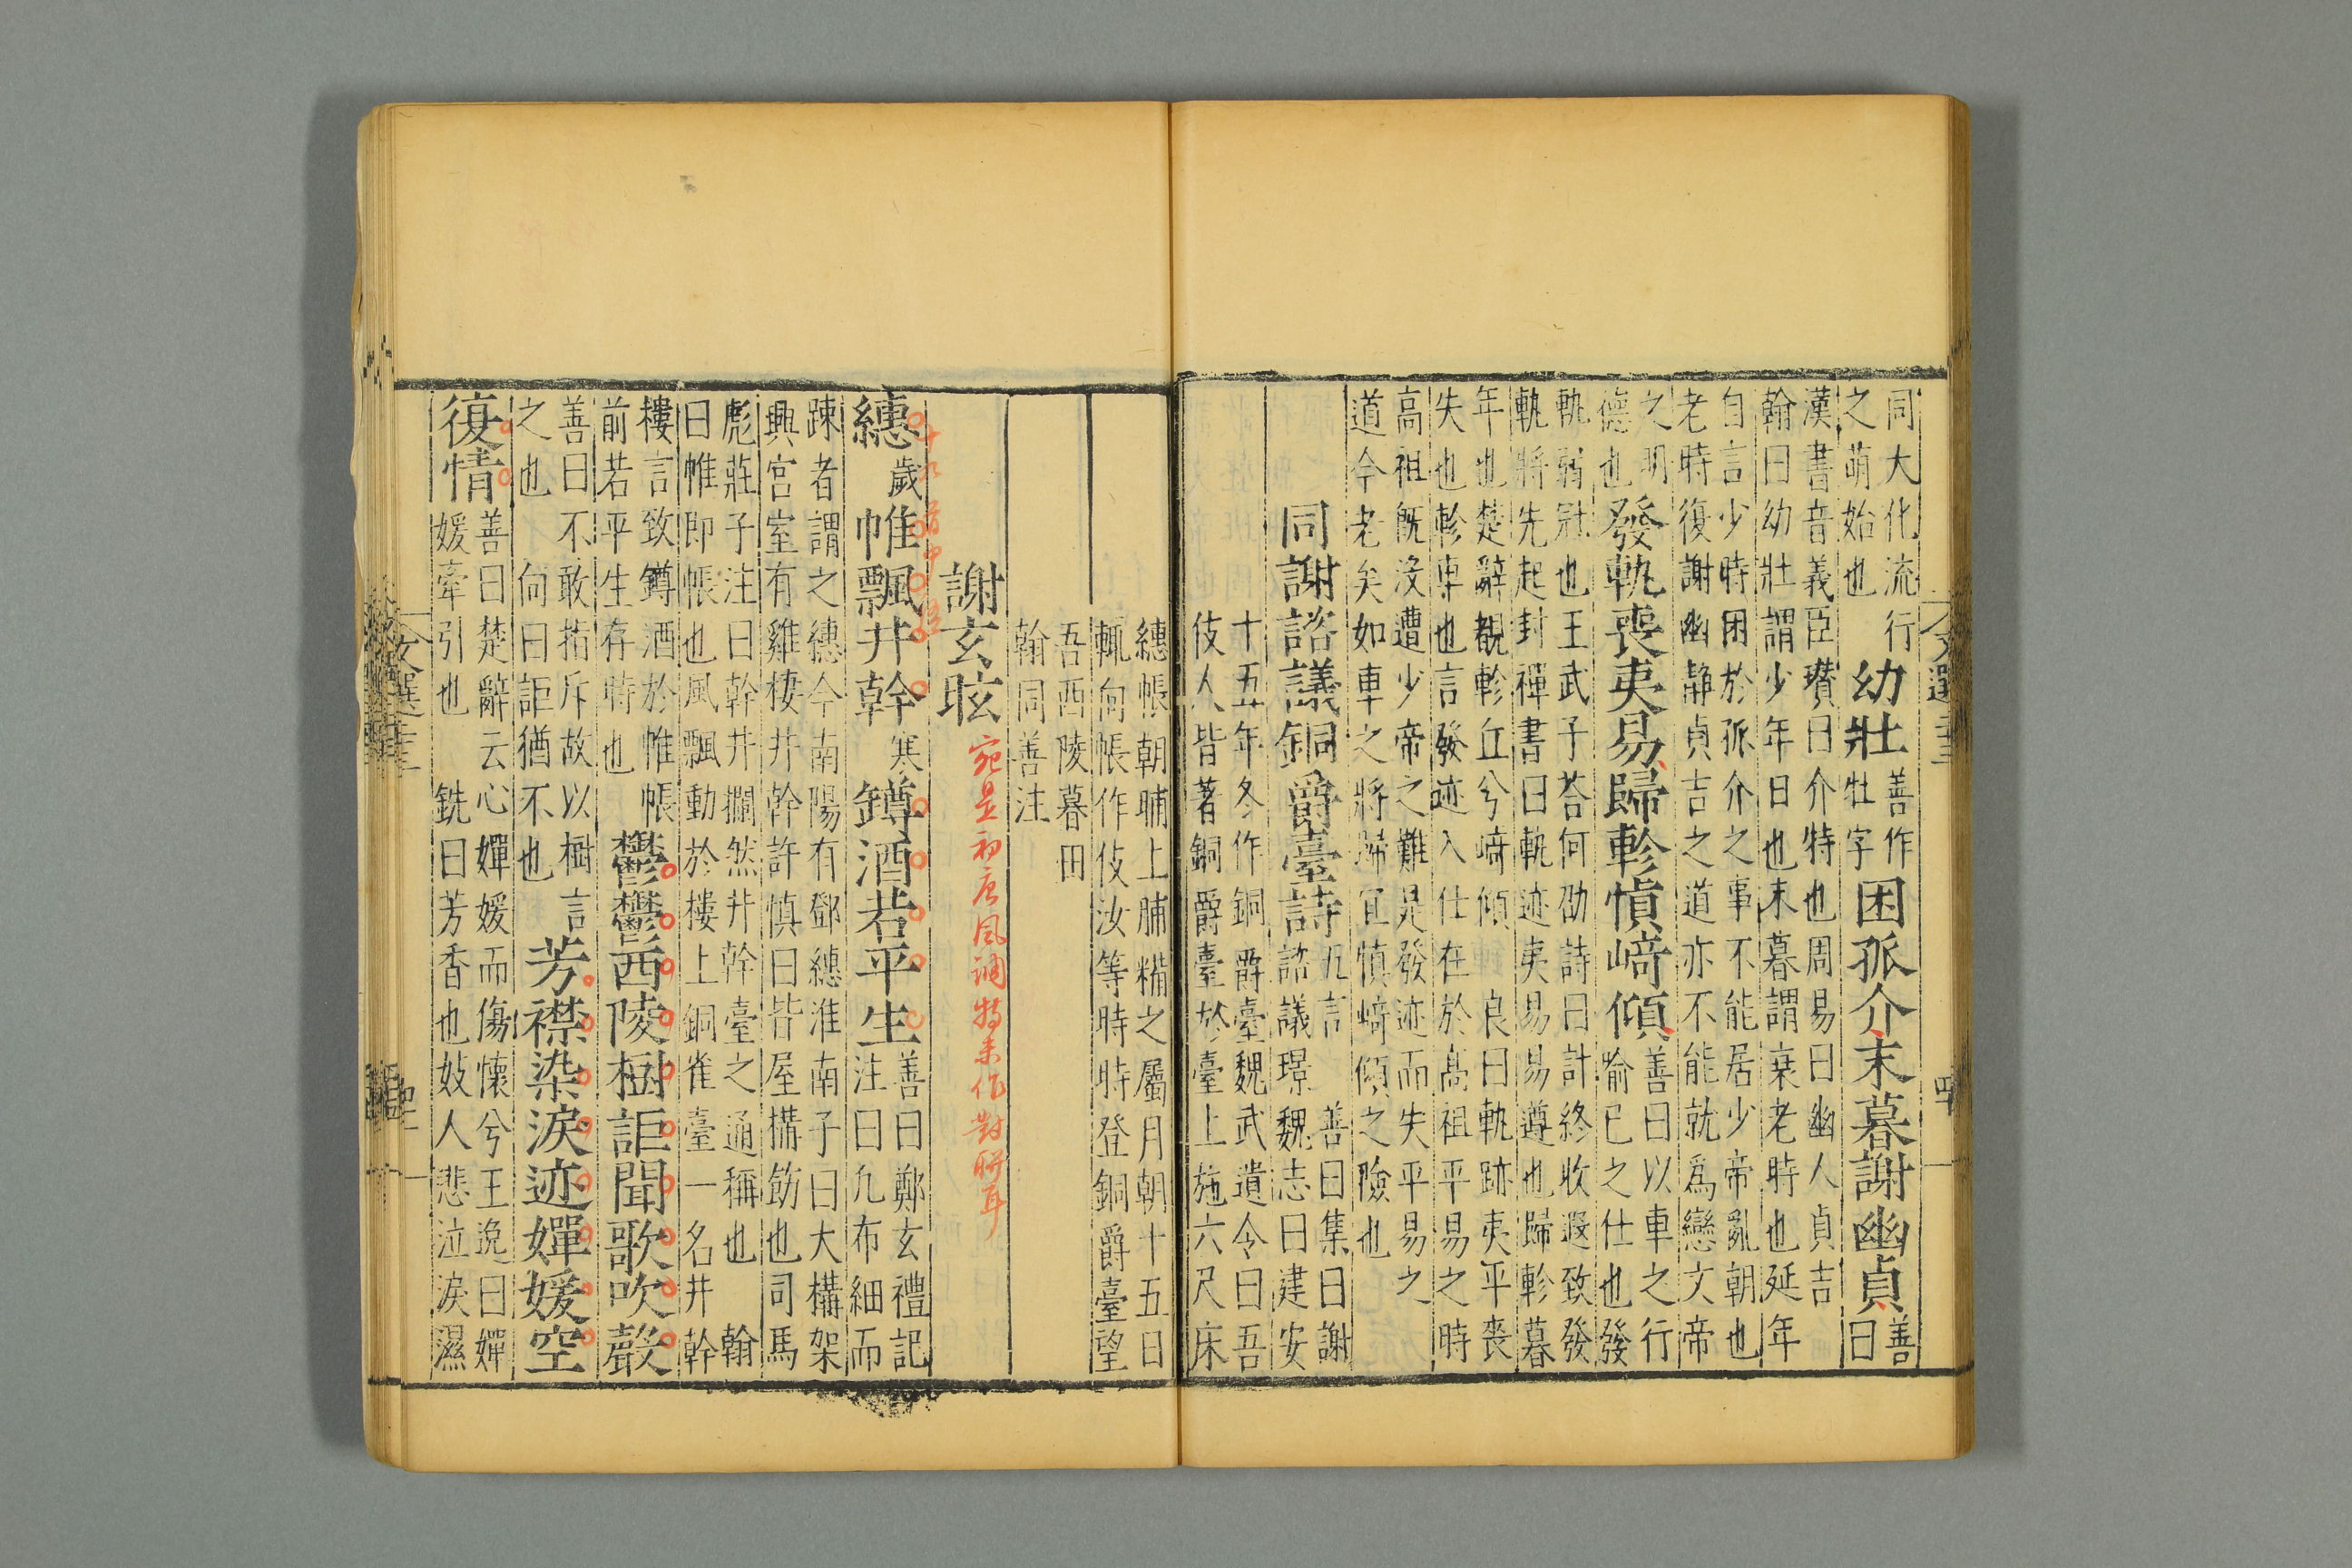 同大化流行
之萌始也
幼壯
善作
牡字
困孤介末暮謝幽貞
善
曰
漢書音義臣瓚曰介特也周易曰幽人貞吉
翰曰幼壯謂少年日也末暮謂衰老時也延年
自言少時困於孤介之事不能居少帝亂朝也
老時復謝幽靜貞吉之道亦不能就為戀文帝
之明
德也
發軌喪夷易歸軫慎崎傾
善曰以車之行
喻已之仕也發
軌弱冠也王武子荅何劭詩曰計終收遐致發
軌將先起封禪書曰軌迹夷易易遵也歸軫暮
年也楚辭覩軫丘兮崎傾
良曰軌跡夷平喪
失也軫車也言發迹入仕在於高祖平易之時
高祖旣没遭少帝之難是發迹而失平易之
道今老矣如車之將歸宜慎崎傾之險也
同謝諮議銅爵臺詩
五言
善曰集曰謝
諮議璟魏志曰建安
十五年冬作銅爵臺魏武遺令曰吾
伎人皆著銅爵臺於臺上施六尺床
文選二十三
四十
繐帳朝晡上脯糒之屬月朝十五日
輒向帳作伎汝等時時登銅爵臺望
吾西陵暮田
翰同善注
謝玄暉
宛是初唐風調特未作對駢耳
繐
歲
帷飄井幹
寒
罇酒若平生
善曰鄭玄禮記
注曰凡布細而
踈者謂之繐今南陽有鄧繐淮南子曰大構架
興宮室有雞棲井幹許慎曰皆屋構飾也司馬
彪莊子注曰幹井攔然井幹臺之通稱也
翰
曰帷即帳也風飄動於樓上銅雀臺一名井幹
樓言致罇酒於帷帳
前若平生存時也
鬱鬱西陵樹詎聞歌吹聲
善曰不敢指斥故以樹言
之也
向曰詎猶不也
芳襟染淚迹嬋媛空
復情
善曰楚辭云心嬋媛而傷懷兮王逸曰嬋
媛牽引也
銑曰芳香也妓人悲泣淚濕
文選二十三